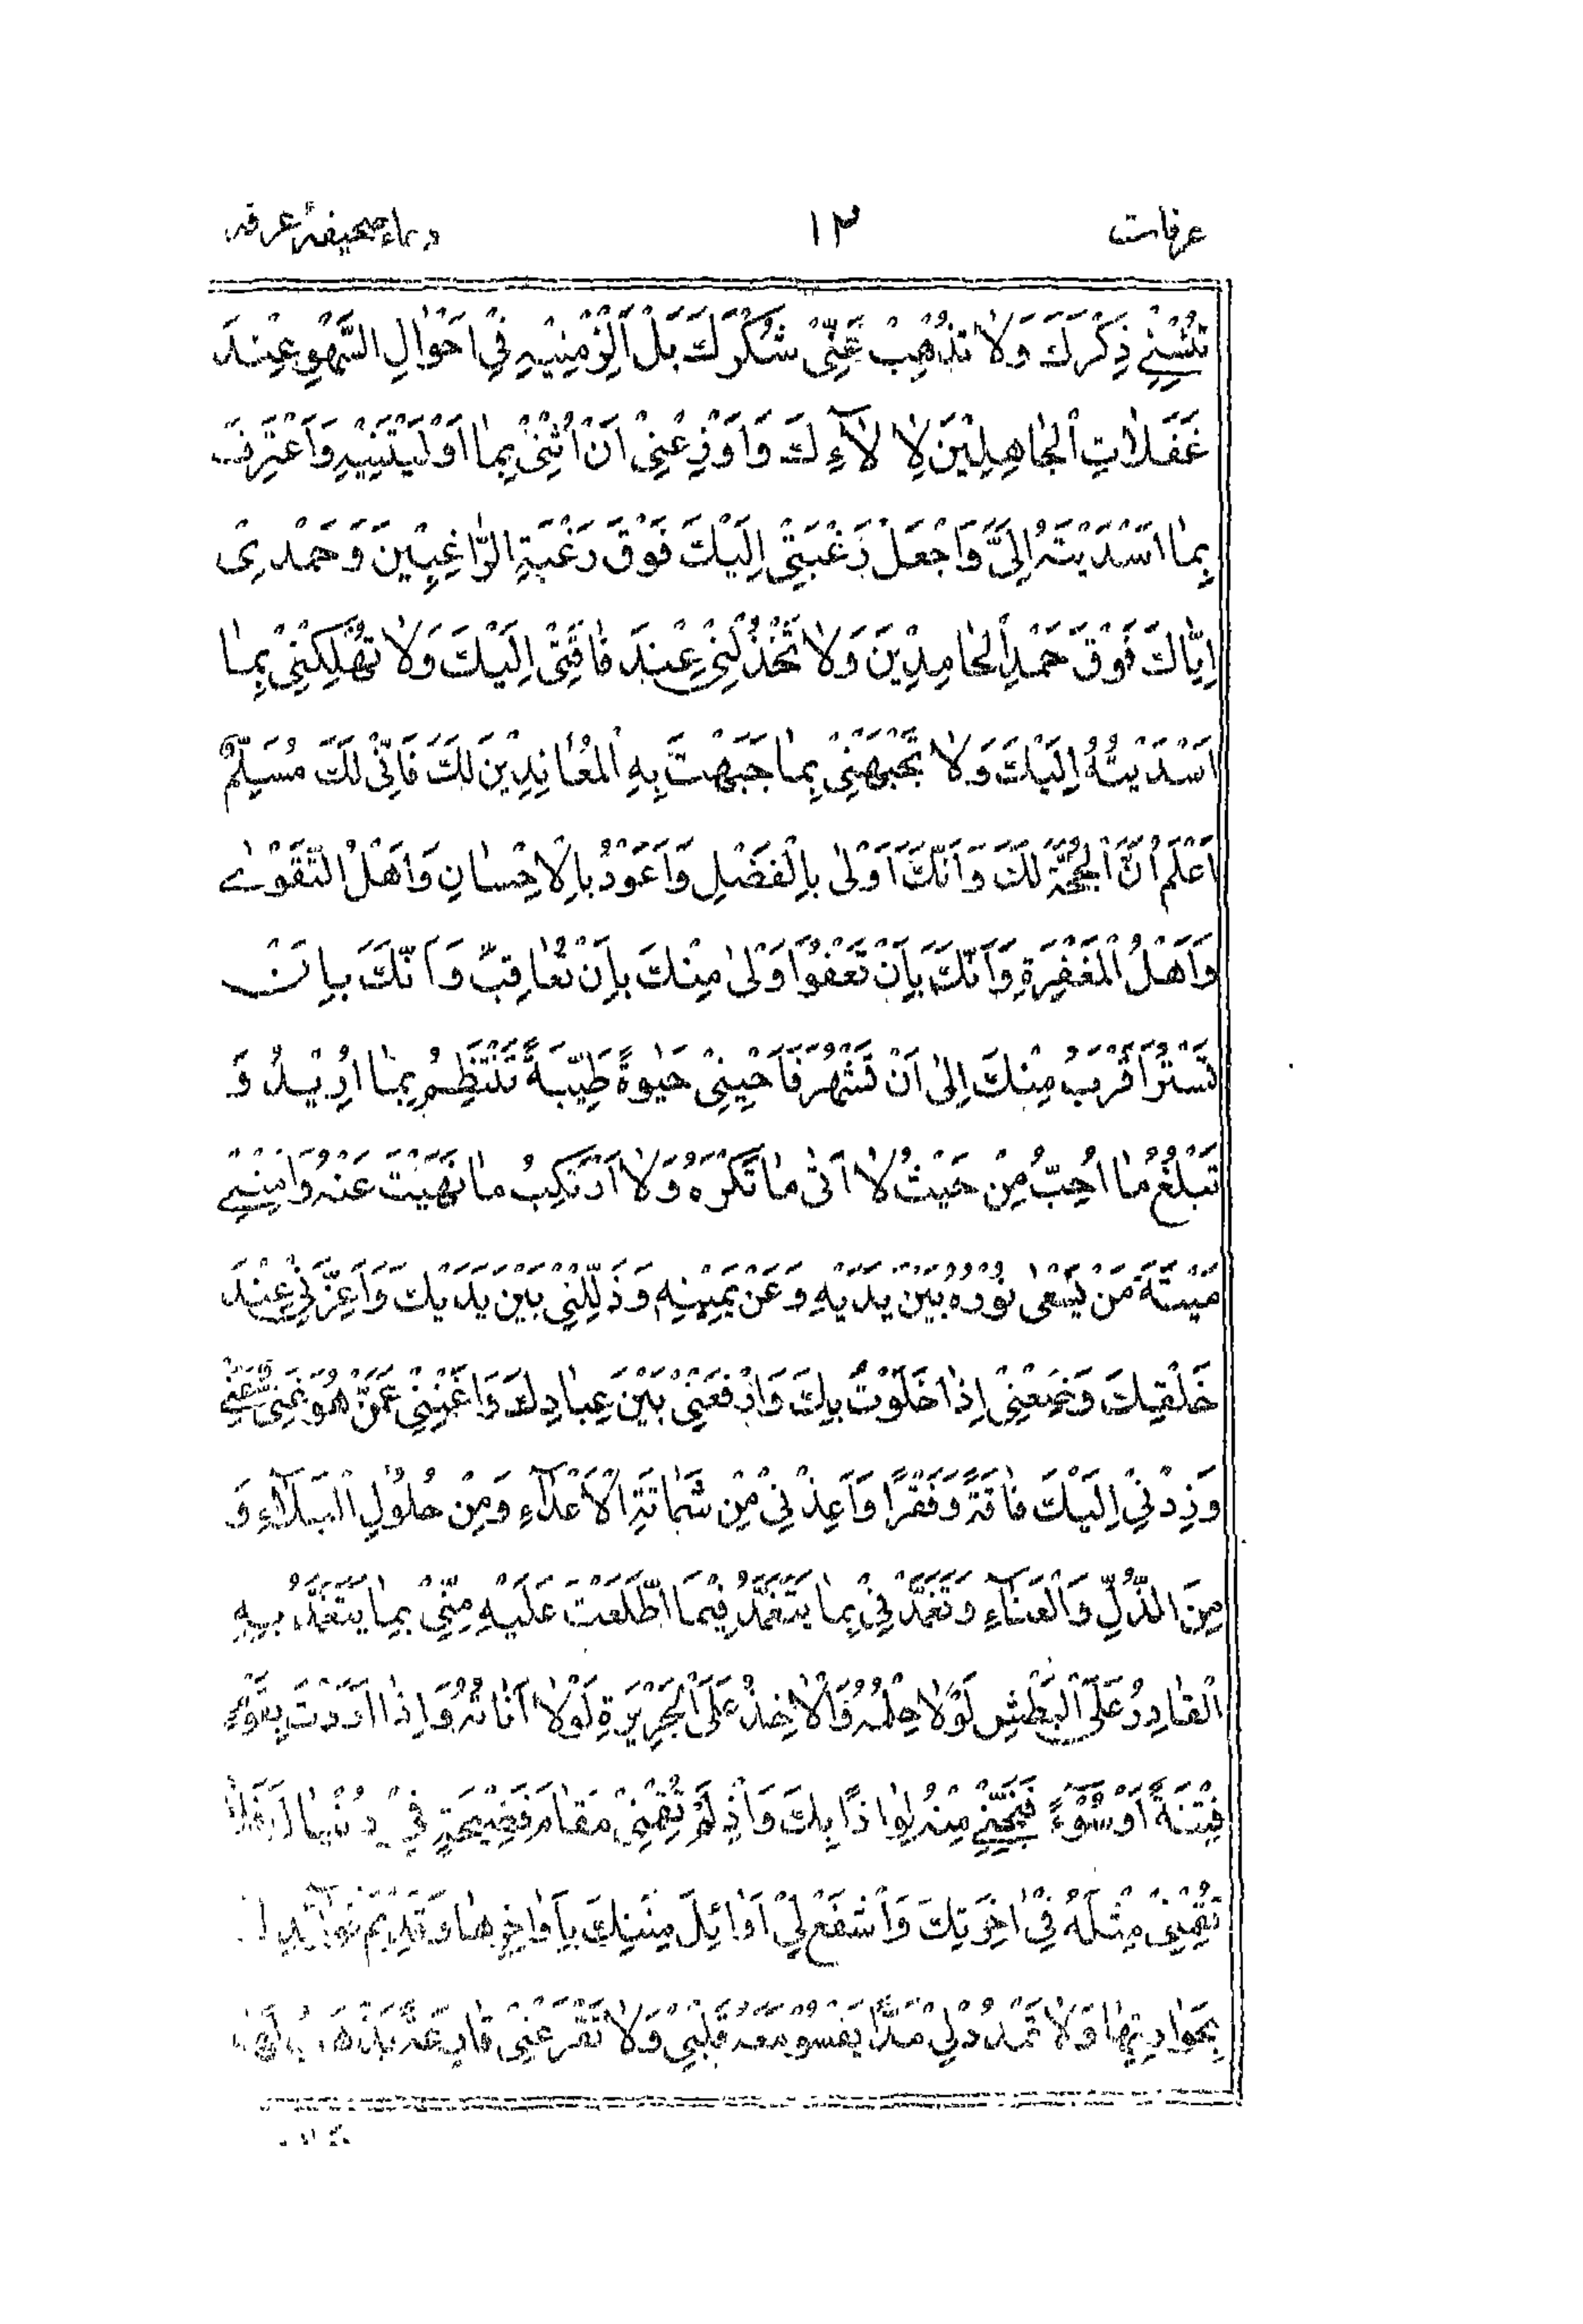 عرفات ۱۲ دعاء صحیفۂ عرفه
تُنْسِنِیْ ذِكْرَكَ وَلَا تُذْهِبْ عَنِّیْ شُكْرَكَ بَلْ اَلْزِمْنِیْهِ فِیْ اَحْوَالِ السَّهْوِ عِنْدَ
غَفَلَاتِ الْجَاهِلِیْنَ لِاٰلَآءِكَ وَاَوْزِعْنِیْ اَنْ اُثْنِیَ بِمَا اَوْلَیْتَنِیْهِ وَاَعْتَرِفَ
بِمَا اَسْدَیْتَهُ اِلَیَّ وَاجْعَلْ رَغْبَتِیْ اِلَیْكَ فَوْقَ رَغْبَةِ الرَّاغِبِیْنَ وَحَمْدِیْ
اِیَّاكَ فَوْقَ حَمْدِ الْحَامِدِیْنَ وَلَا تَخْذُلْنِیْ عِنْدَ فَاقَتِیْ اِلَیْكَ وَلَا تُهْلِكْنِیْ بِمَا
اَسْدَیْتُهُ اِلَیْكَ وَلَا تَجْبَهْنِیْ بِمَا جَبَهْتَ بِهِ الْمُعَانِدِیْنَ لَكَ فَاِنِّیْ لَكَ مُسَلِّمٌ
اَعْلَمُ اَنَّ الْحُجَّةَ لَكَ وَاَنَّكَ اَوْلٰی بِالْفَضْلِ وَاَعْوَدُ بِالْاِحْسَانِ وَاَهْلُ التَّقْوٰی
وَاَهْلُ الْمَغْفِرَةِ وَاَنَّكَ بِاَنْ تَعْفُوَ اَوْلٰی مِنْكَ بِاَنْ تُعَاقِبَ وَاَنَّكَ بِاَنْ
تَسْتُرَ اَقْرَبُ مِنْكَ اِلٰی اَنْ تَشْهَرَ فَاَحْیِنِیْ حَیٰوةً طَیِّبَةً تَنْتَظِمُ بِمَا اُرِیْدُ وَ
تَبْلُغُ مَا اُحِبُّ مِنْ حَیْثُ لَا اٰتِیْ مَا تَكْرَهُ وَلَا اَرْتَكِبُ مَا نَهَیْتَ عَنْهُ وَاَمِتْنِیْ
مَیْتَةَ مَنْ یَسْعٰی نُوْرُهُ بَیْنَ یَدَیْهِ وَعَنْ یَمِیْنِهِ وَذَلِّلْنِیْ بَیْنَ یَدَیْكَ وَاَعِزَّنِیْ عِنْدَ
خَلْقِكَ وَضَعْنِیْ اِذَا خَلَوْتُ بِكَ وَارْفَعْنِیْ بَیْنَ عِبَادِكَ وَاَغْنِنِیْ عَمَّنْ هُوَ غَنِیٌّ عَنِّیْ
وَزِدْنِیْ اِلَیْكَ فَاقَةً وَفَقْرًا وَاَعِذْنِیْ مِنْ شَمَاتَةِ الْاَعْدَآءِ وَمِنْ حُلُوْلِ الْبَلَآءِ وَ
مِنَ الذُّلِّ وَالْعَنَآءِ وَتَغَمَّدْنِیْ فِیْمَا اطَّلَعْتَ عَلَیْهِ مِنِّیْ بِمَا یَتَغَمَّدُ بِهِ
الْقَادِرُ عَلَی الْبَطْشِ لَوْلَا حِلْمُهُ وَالْاٰخِذُ عَلَی الْجَرِیْرَةِ لَوْلَا اَنَاتُهُ وَاِذَا اَرَدْتَ بِقَوْمٍ
فِتْنَةً اَوْ سُوْءً فَنَجِّنِیْ مِنْهُ لِوَاذًا بِكَ وَاِذْ لَمْ تُقِمْنِیْ مَقَامَ فَضِیْحَةٍ فِیْ دُنْیَاكَ فَلَا
تُقِمْنِیْ مِثْلَهُ فِیْ اٰخِرَتِكَ وَاشْفَعْ لِیْ اَوَائِلَ مِنَنِكَ بِاَوَاخِرِهَا وَقَدِیْمَ فَوَآئِدِكَ
بِحَوَادِثِهَا وَلَا تَمْدُدْ لِیْ مَدًّا یَقْسُوْ مَعَهُ قَلْبِیْ وَلَا تَقْرَعْنِیْ قَارِعَةً یَذْهَبُ لَهَا